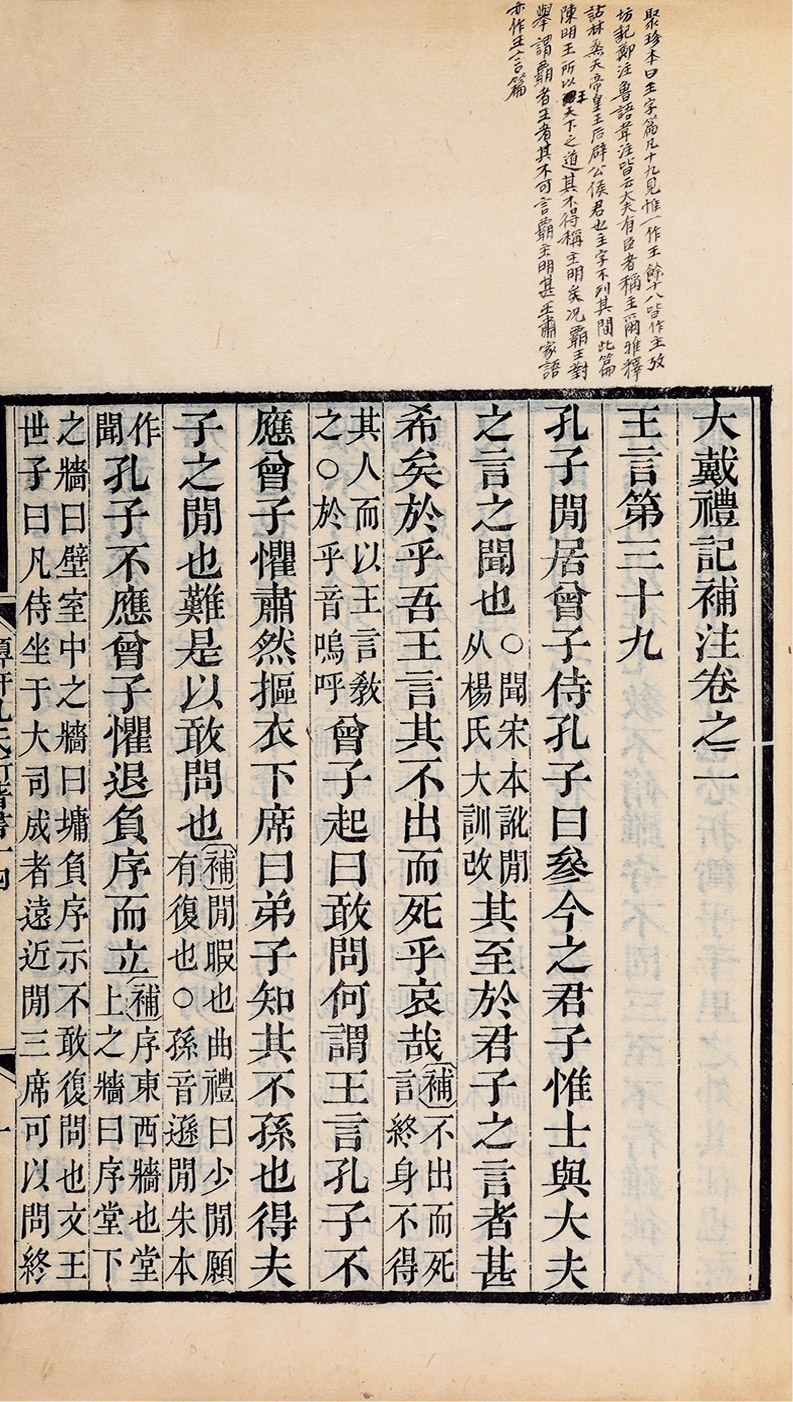 聚珍本曰主字篇凡十九見惟一作王餘十八皆作主攷
坊記鄭注魯語韋注皆云大夫有臣者稱主爾雅釋
詁林烝天帝皇王后辟公侯君也主字不列其間此篇
陳明王所以王天下之道其不得稱主明矣況霸王對
舉謂霸者王者其不可言霸主明甚王肅家語
亦作王言篇
大戴禮記補注卷之一
王言第三十九
孔子閒居曾子侍孔子曰參今之君子惟士與大夫
之言之聞也○聞宋本訛閒从楊氏大訓改其至於君子之言者甚
希矣於乎吾王言其不出而死乎哀哉補不出而死言終身不得
其人而以王言教之○於乎音嗚呼曾子起曰敢問何謂王言孔子不
應曾子懼肅然摳衣下席曰弟子知其不孫也得夫
子之閒也難是以敢問也補閒暇也曲禮曰少閒願有復也○孫音遜閒朱本
作聞孔子不應曾子懼退負序而立補序東西牆也堂上之牆曰序堂下
之牆曰壁室中之牆曰墉負序示不敢復問也文王
世子曰凡侍坐于大司成者遠近閒三席可以問終